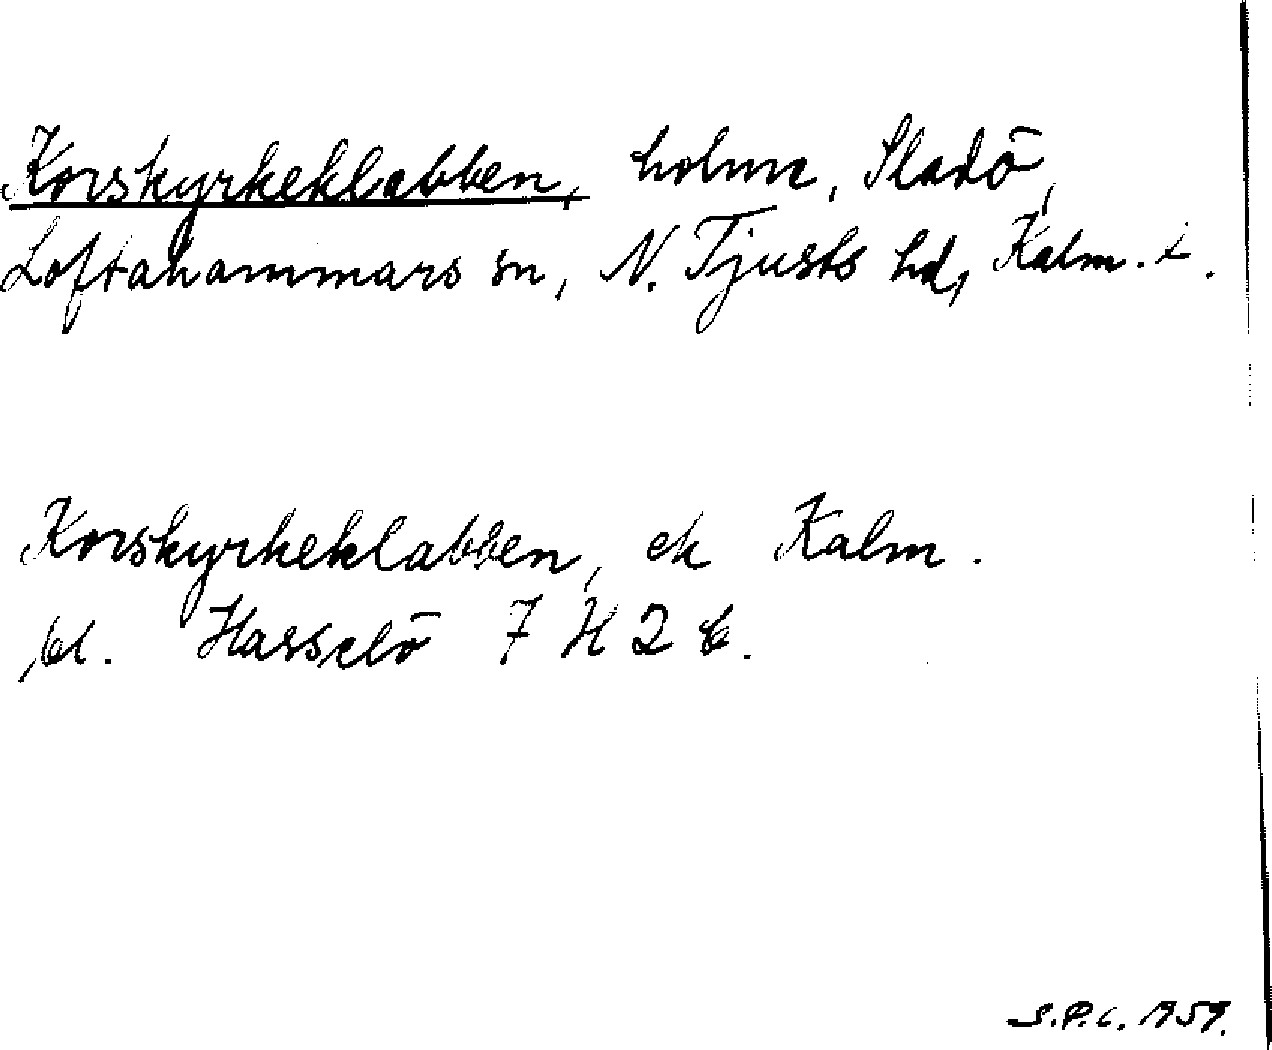 Korskyrkeklabben, holme, Sladö,
Loftahammars sn, N. Tjusts hd, Kalm. l.
Korskyrkeklabben, ek Kalm.
bl. Hasselö 7 H 2 c.
S.P.C. 1959.